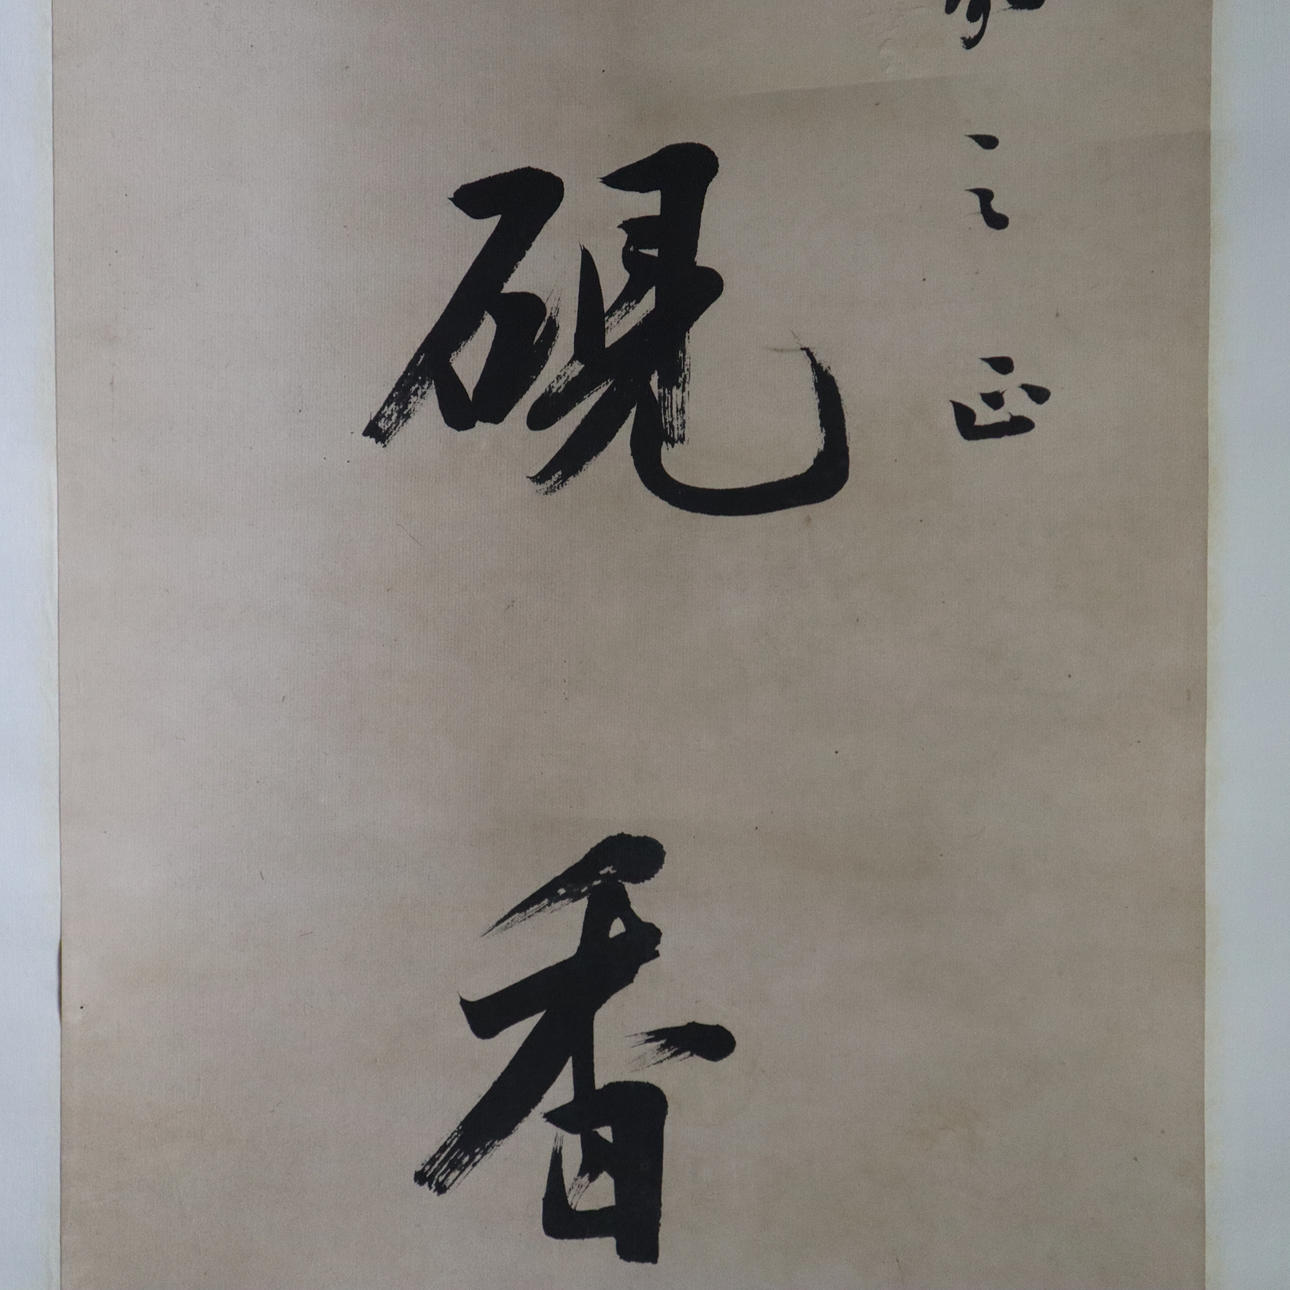 之正
硯香